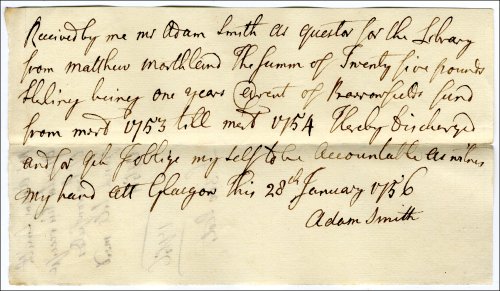 Received by me mr Adam Smith as questor for the Library
from matthew morthland The summ of Twenty five pounds
sterling being one years @rent of Barrowfields fund
from mert 1753 till mert 1754 Hereby Discharged
and for qch I oblige my self to be accountable as witnes
my hand att Glasgow This 28th January 1756
Adam Smith